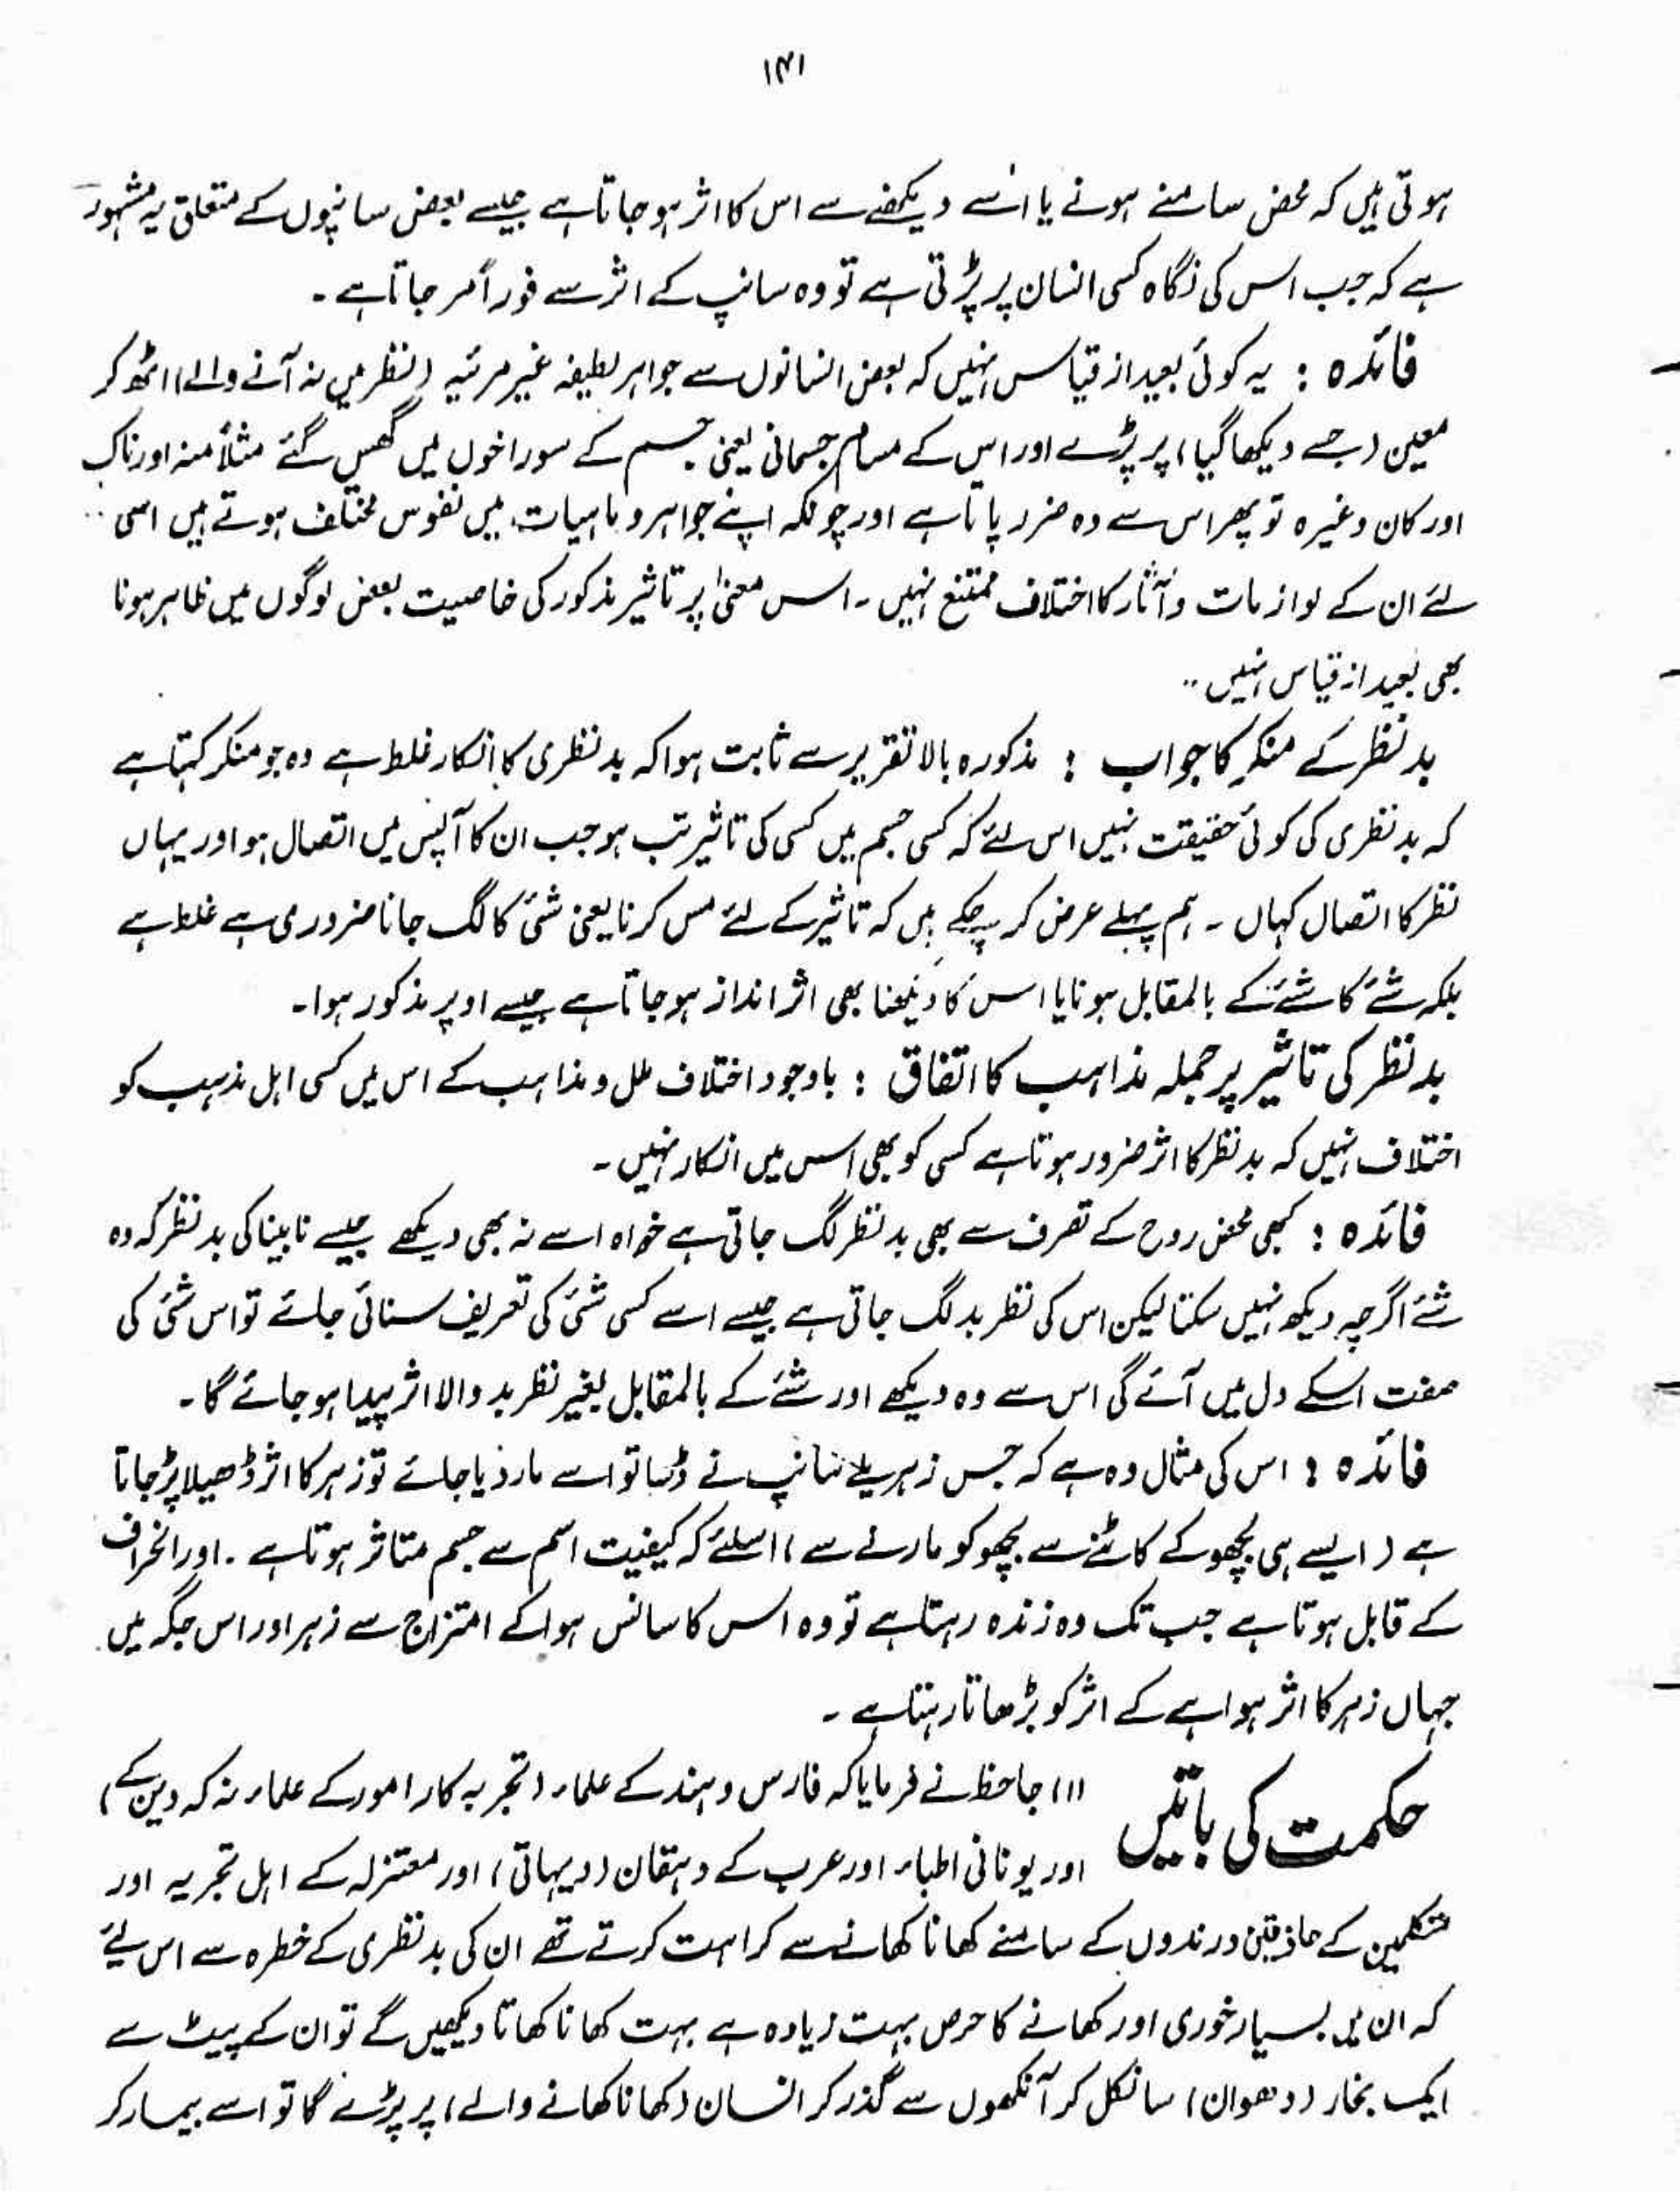 ۱۴۱
ہوتی ہیں کہ محض سامنے ہونے یا اسے دیکھنے سے اس کا اثر ہو جاتا ہے جیسے بعض سانپوں کے متعلق یہ مشہور
ہے کہ جب اس کی نگاہ کسی انسان پر پڑتی ہے تو وہ سانپ کے اثر سے فوراً مر جاتا ہے ۔
فائدہ : یہ کوئی بعید از قیاس نہیں کہ بعض انسانوں سے جواہر لطیفہ غیر مرئیہ (نظر میں نہ آنے والے) اٹھ کر
معین (جسے دیکھا گیا) پر پڑے اور اس کے مسام جسمانی یعنی جسم کے سوراخوں میں گھس گئے مثلاً منہ اور ناک
اور کان وغیرہ تو پھر اس سے وہ ضرر پاتا ہے اور چونکہ اپنے جواہر و ماہیات میں نفوس مختلف ہوتے ہیں اسی
لئے ان کے لوازمات و آثار کا اختلاف ممتنع نہیں ۔ اس معنیٰ پر تاثیر مذکور کی خاصیت بعض لوگوں میں ظاہر ہونا
بھی بعید از قیاس نہیں ۔۔
بدنظر کے منکر کا جواب : مذکورہ بالا تقریر سے ثابت ہوا کہ بدنظری کا انکار غلط ہے وہ جو منکر کہتا ہے
کہ بدنظری کی کوئی حقیقت نہیں اس لئے کہ کسی جسم میں کسی کی تاثیر تب ہو جب ان کا آپس میں اتصال ہو اور یہاں
نظر کا اتصال کہاں ۔ ہم پہلے عرض کر چکے ہیں کہ تاثیر کے لئے مس کرنا یعنی شئ کا لگ جانا ضروری ہے غلط ہے
بلکہ شئے کا شئے کے بالمقابل ہونا یا اس کا دیکھنا بھی اثر انداز ہو جاتا ہے جیسے اوپر مذکور ہوا۔
بدنظر کی تاثیر پر جملہ مذاہب کا اتفاق : باوجود اختلاف ملل و مذاہب کے اس میں کسی اہل مذہب کو
اختلاف نہیں کہ بدنظر کا اثر ضرور ہوتا ہے کسی کو بھی اس میں انکار نہیں ۔
فائدہ : کبھی محض روح کے تصرف سے بھی بدنظر لگ جاتی ہے خواہ اسے نہ بھی دیکھے جیسے نابینا کی بدنظر کہ وہ
شئے اگرچہ دیکھ نہیں سکتا لیکن اس کی نظر بد لگ جاتی ہے جیسے اسے کسی شئ کی تعریف سنائی جائے تو اس شئ کی
صفت اسکے دل میں آئے گی اس سے وہ دیکھے اور شئے کے بالمقابل بغیر نظر بد والا اثر پیدا ہو جائے گا ۔
فائدہ : اس کی مثال وہ ہے کہ جس زہریلے سانپ نے ڈسا تو اسے مار دیا جائے تو زہر کا اثر ڈھیلا پڑ جاتا
ہے ( ایسے ہی بچھو کے کاٹنے سے بچھو کو مارنے سے ) اسلئے کہ کیفیت اسم سے جسم متاثر ہوتا ہے ۔ اور انحراف
کے قابل ہوتا ہے جب تک وہ زندہ رہتا ہے تو وہ اس کا سانس ہوا کے امتزاج سے زہر اور اس جگہ میں
جہاں زہر کا اثر ہوا ہے کے اثر کو بڑھاتا رہتا ہے ۔
حکمت کی باتیں (۱) جاحظ نے فرمایا کہ فارس و ہند کے علماء (تجربہ کار امور کے علماء نہ کہ دین کے)
اور یونانی اطباء اور عرب کے دہقان (دیہاتی) اور معتزلہ کے اہل تجربہ اور
متکلمین کے حاذقین درندوں کے سامنے کھانا کھانے سے کراہت کرتے تھے ان کی بدنظری کے خطرہ سے اس لئے
کہ ان میں بسیار خوری اور کھانے کا حرص بہت زیادہ ہے بہت کھانا کھاتا دیکھیں گے تو ان کے پیٹ سے
ایک بخار (دھوان) سا نکل کر آنکھوں سے گذر کر انسان (کھانا کھانے والے) پر پڑے گا تو اسے بیمار کر